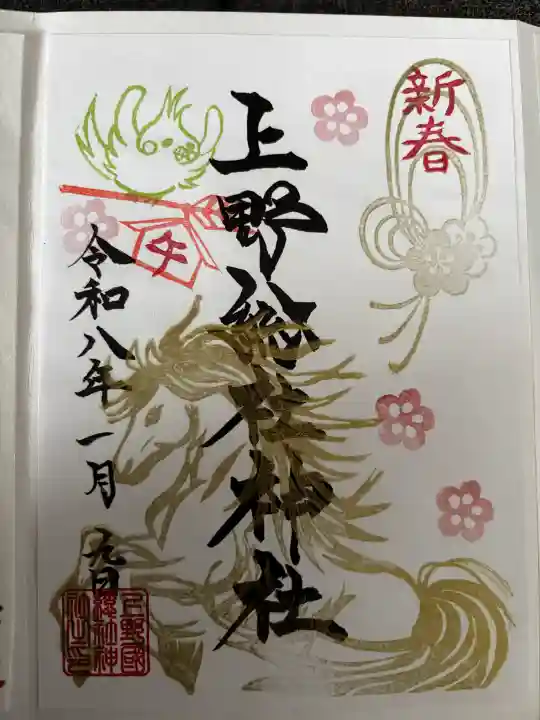 新春
上野総社神社
令和八年一月九日
午
上野國
総社神
社之印